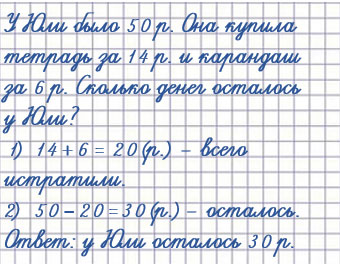 У Юли было 50 р. Она купила
тетрадь за 14 р. и карандаш
за 6 р. Сколько денег осталось
у Юли?
1) 14 + 6 = 20 (р.) – всего
истратили.
2) 50 – 20 = 30 (р.) – осталось.
Ответ: у Юли осталось 30 р.